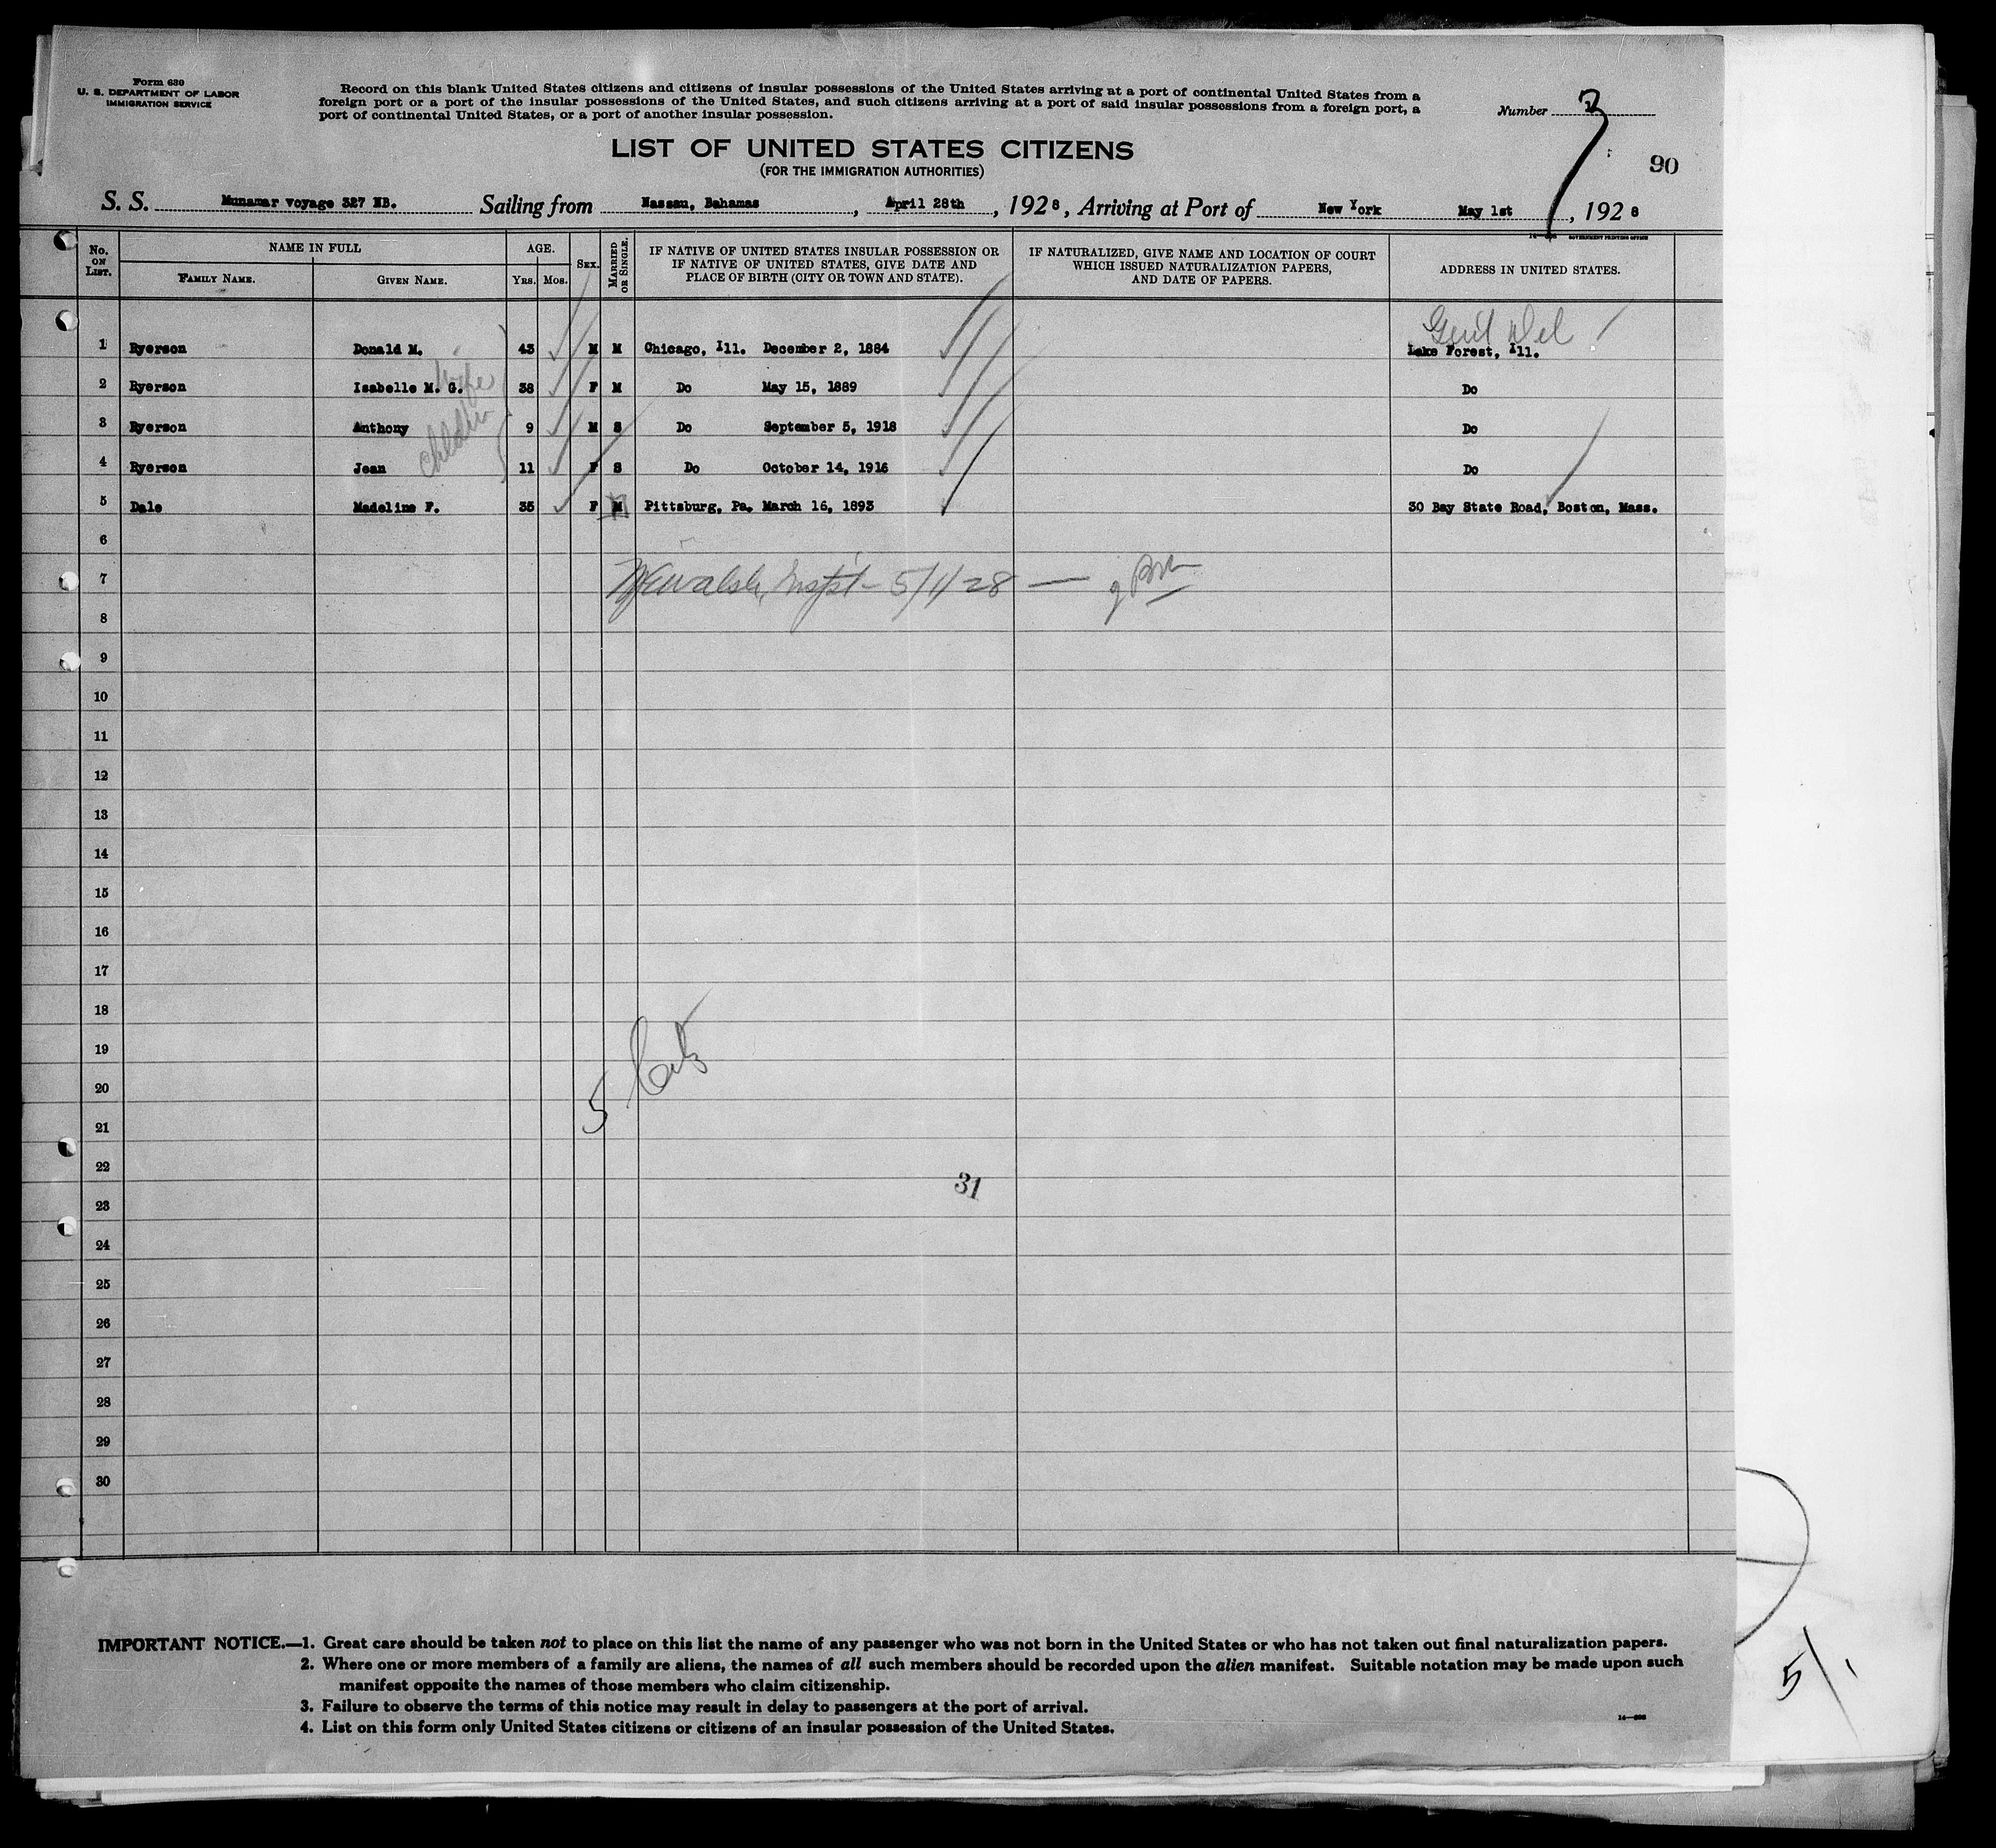 Form 630
U. S. DEPARTMENT OF LABOR
IMMIGRATION SERVICE
Record on this blank United States citizens and citizens of insular possessions of the United States arriving at a port of continental United States from a
foreign port or a port of the insular possessions of the United States, and such citizens arriving at a port of said insular possessions from a foreign port, a
port of continental United States, or a port of another insular possession.
Number 3
90
LIST OF UNITED STATES CITIZENS
(FOR THE IMMIGRATION AUTHORITIES)
S. S. Munamar voyage 327 NB. Sailing from Nassau, Bahamas, April 28th, 1928, Arriving at Port of New York May 1st, 1928
GOVERNMENT PRINTING OFFICE
No. ON LIST.
NAME IN FULL
FAMILY NAME. GIVEN NAME.
AGE.
YRS. MOS.
SEX.
MARRIED OR SINGLE.
IF NATIVE OF UNITED STATES INSULAR POSSESSION OR
IF NATIVE OF UNITED STATES, GIVE DATE AND
PLACE OF BIRTH (CITY OR TOWN AND STATE).
IF NATURALIZED, GIVE NAME AND LOCATION OF COURT
WHICH ISSUED NATURALIZATION PAPERS,
AND DATE OF PAPERS.
ADDRESS IN UNITED STATES.
Gen'l Del
1 Ryerson Donald M. 43 M M Chicago, Ill. December 2, 1884 Lake Forest, Ill.
wife
2 Ryerson Isabelle M. G. 38 F M Do May 15, 1889 Do
children
3 Ryerson Anthony 9 M S Do September 5, 1918 Do
4 Ryerson Jean 11 F S Do October 14, 1916 Do
5 Dale Madeline F. 35 F M Pittsburg, Pa. March 16, 1893 30 Bay State Road, Boston, Mass.
6
7 Walsh, Insp't - 5/1/28 —
8
9
10
11
12
13
14
15
16
17
18
19
20
5 Cits
21
22
31
23
24
25
26
27
28
29
30
IMPORTANT NOTICE.—1. Great care should be taken not to place on this list the name of any passenger who was not born in the United States or who has not taken out final naturalization papers.
2. Where one or more members of a family are aliens, the names of all such members should be recorded upon the alien manifest. Suitable notation may be made upon such
manifest opposite the names of those members who claim citizenship.
3. Failure to observe the terms of this notice may result in delay to passengers at the port of arrival.
4. List on this form only United States citizens or citizens of an insular possession of the United States.
5/1